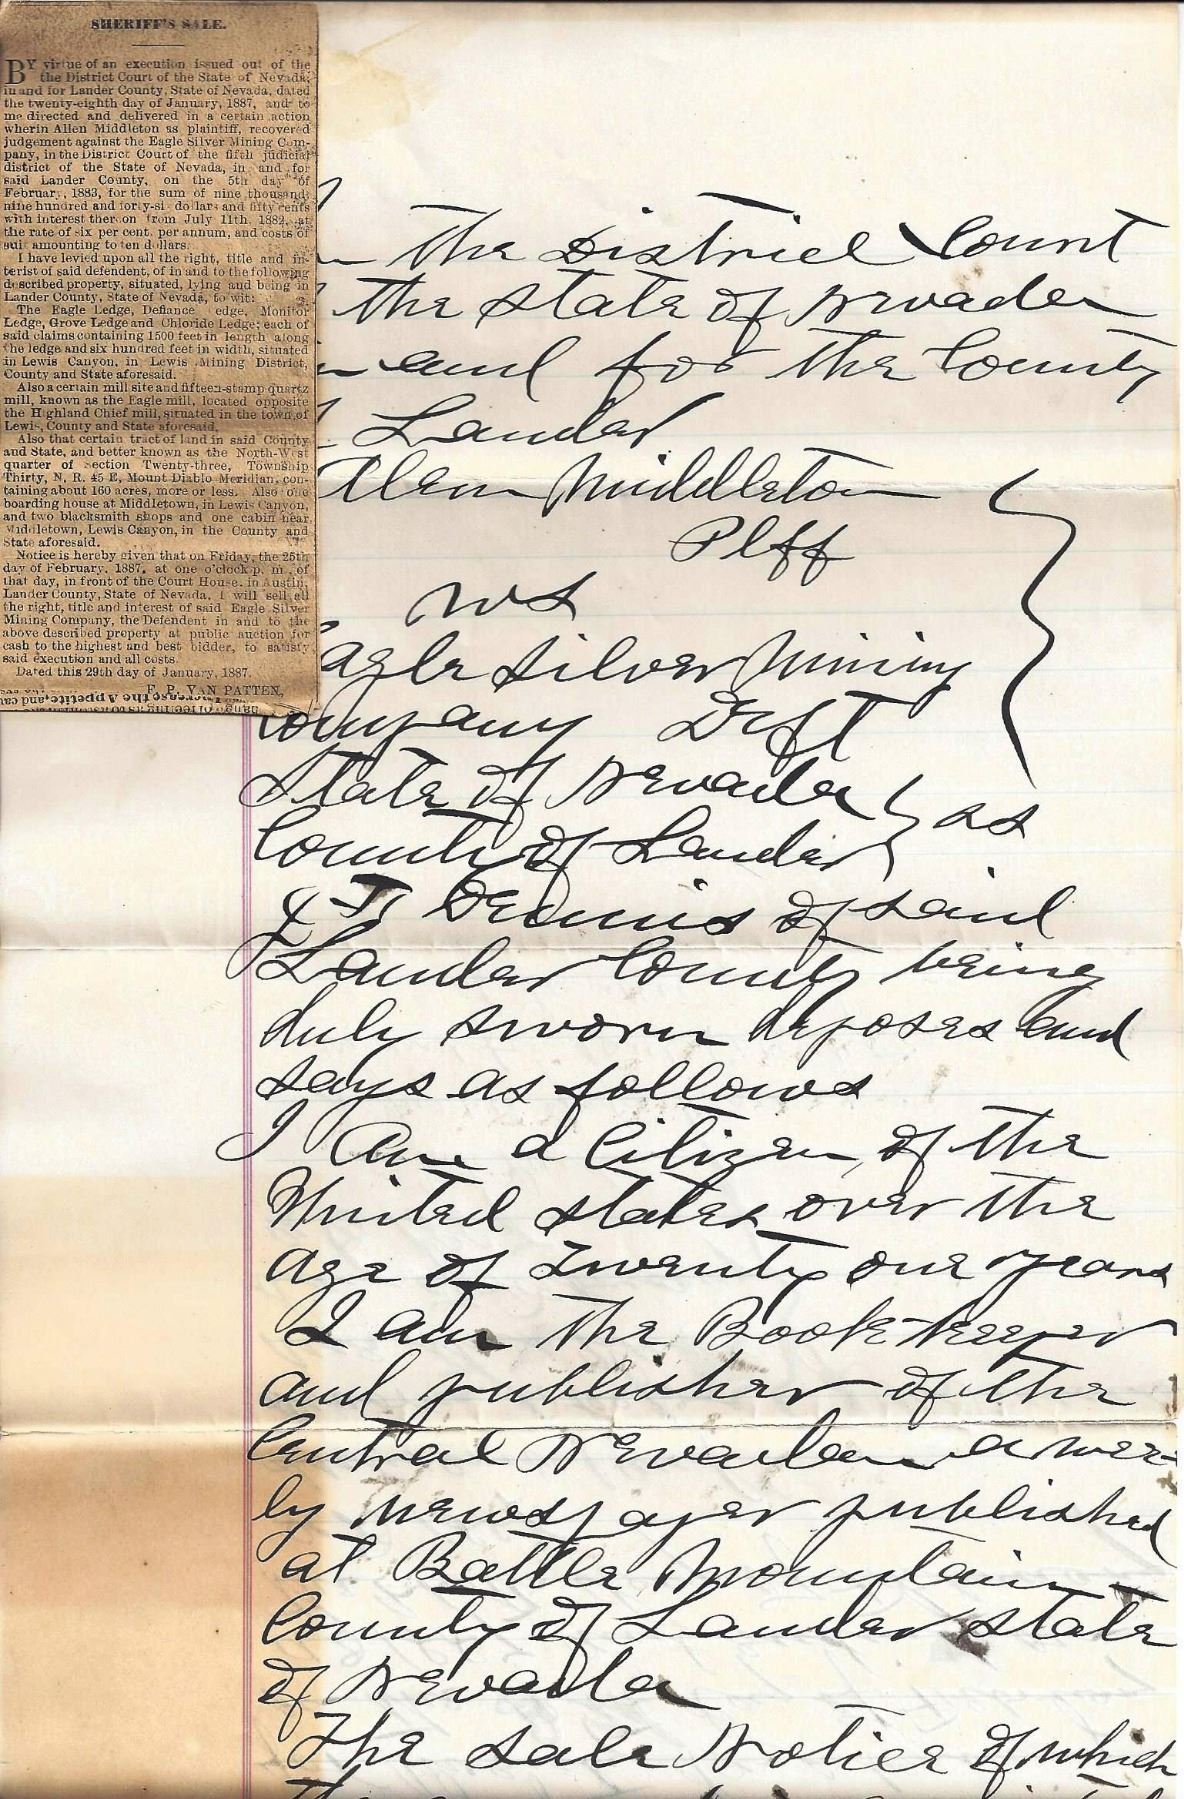 SHERIFF'S SALE.
BY virtue of an execution issued out of the
the District Court of the State of Nevada,
in and for Lander County, State of Nevada, dated
the twenty-eighth day of January, 1887, and to
me directed and delivered in a certain action
wherin Allen Middleton as plaintiff, recovered
judgement against the Eagle Silver Mining Com-
pany, in the District Court of the fifth judicial
district of the State of Nevada, in and for
said Lander County, on the 5th day of
Februar, 1883, for the sum of nine thousand
nine hundred and forty-si dollars and fifty cents
with interest ther on from July 11th, 1882, at
the rate of six per cent. per annum, and costs of
sui amounting to ten dollars.
I have levied upon all the right, title and in-
terist of said defendent, of in and to the following
described property, situated, lying and being in
Lander County, State of Nevada, to wit:
The Eagle Ledge, Defiance edge, Monitor
Ledge, Grove Ledge and Chloride Ledge; each of
said claims containing 1500 feet in length along
the ledge and six hundred feet in width, situated
in Lewis Canyon, in Lewis Mining District,
County and State aforesaid.
Also a certain mill site and fifteen-stamp quartz
mill, known as the Eagle mill, located opposite
the Highland Chief mill, situated in the town of
Lewis, County and State aforesaid.
Also that certain tract of land in said County
and State, and better known as the North-West
quarter of section Twenty-three, Township
Thirty, N. R. 45 E, Mount Diablo Meridian, con-
taining about 160 acres, more or less. Also one
boarding house at Middletown, in Lewis Canyon,
and two blacksmith shops and one cabin near
Middletown, Lewis Canyon, in the County and
State aforesaid.
Notice is hereby given that on Friday, the 25th
day of February, 1887, at one o'clock p. m. of
that day, in front of the Court House, in Austin,
Lander County, State of Nevada, I will sell all
the right, title and interest of said Eagle Silver
Mining Company, the Defendent in and to the
above described property at public auction for
cash to the highest and best bidder, to satisfy
said execution and all costs.
Dated this 29th day of January, 1887.
F. P. VAN PATTEN,
Increase the Appetite and cau
the District Court
the State of Nevada
and for the County
Lander
Allen Middleton
Plff
vs
Eagle Silver Mining
Company Deft
State of Nevada
County of Lander } ss
Dennis of said
Lander County being
duly sworn deposes and
says as follows
I am a Citizen of the
United States over the
age of Twenty one years
I am the Book-keeper
and publisher of the
Central Nevadan a week-
ly newspaper published
at Battle Mountain
County of Lander State
of Nevada
The Sale Notice of which